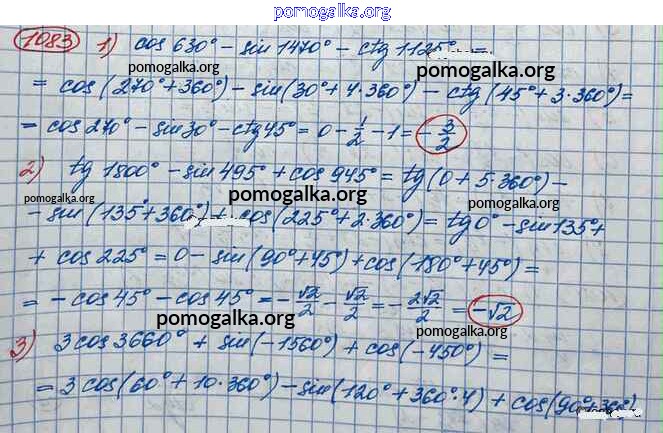 pomogalka.org
1083 1) cos 630° - sin 1470° - ctg 1125° =
pomogalka.org pomogalka.org
= cos (270° + 360°) - sin (30° + 4·360°) - ctg (45° + 3·360°) =
= cos 270° - sin 30° - ctg 45° = 0 - 1/2 - 1 = - 3/2
2) tg 1800° - sin 495° + cos 945° = tg (0 + 5·360°) -
pomogalka.org pomogalka.org pomogalka.org
- sin (135° + 360°) + cos (225° + 2·360°) = tg 0° - sin 135° +
+ cos 225° = 0 - sin (90° + 45°) + cos (180° + 45°) =
= - cos 45° - cos 45° = - √2/2 - √2/2 = - 2√2/2 = -√2
pomogalka.org pomogalka.org
3) 3 cos 3660° + sin (-1560°) + cos (-450°) =
= 3 cos (60° + 10·360°) - sin (120° + 360°·4) + cos (90° + 360°)